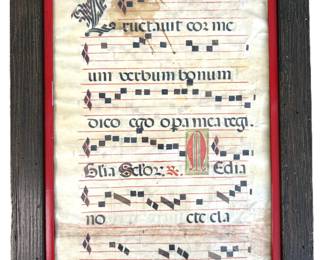 Eructauit cor me
um verbum bonum
dico ego opa mea regi.
Gl̃ia Sc̃lor. Media
no cte cla